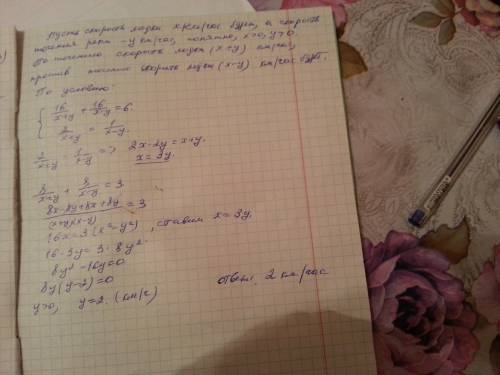 Пусть скорость лодки x км/час будет, а скорость
течения реки - y км/час, понятно, x>0, y>0.
По течению скорость лодки (x+y) км/час,
против течения скорость лодки (x-y) км/час будет.
По условию:
{ 16/(x+y) + 16/(x-y) = 6.
2/(x+y) = 1/(x-y).
2/(x+y) = 1/(x-y) => 2x-2y=x+y.
x=3y.
8/(x+y) + 8/(x-y) = 3.
(8x-8y+8x+8y)/((x+y)(x-y)) = 3
16x=3(x²-y²), ставим x=3y,
16·3y=3·8y²
8y²-16y=0
8y(y-2)=0
y>0, y=2. (км/ч)
ответ. 2 км/час